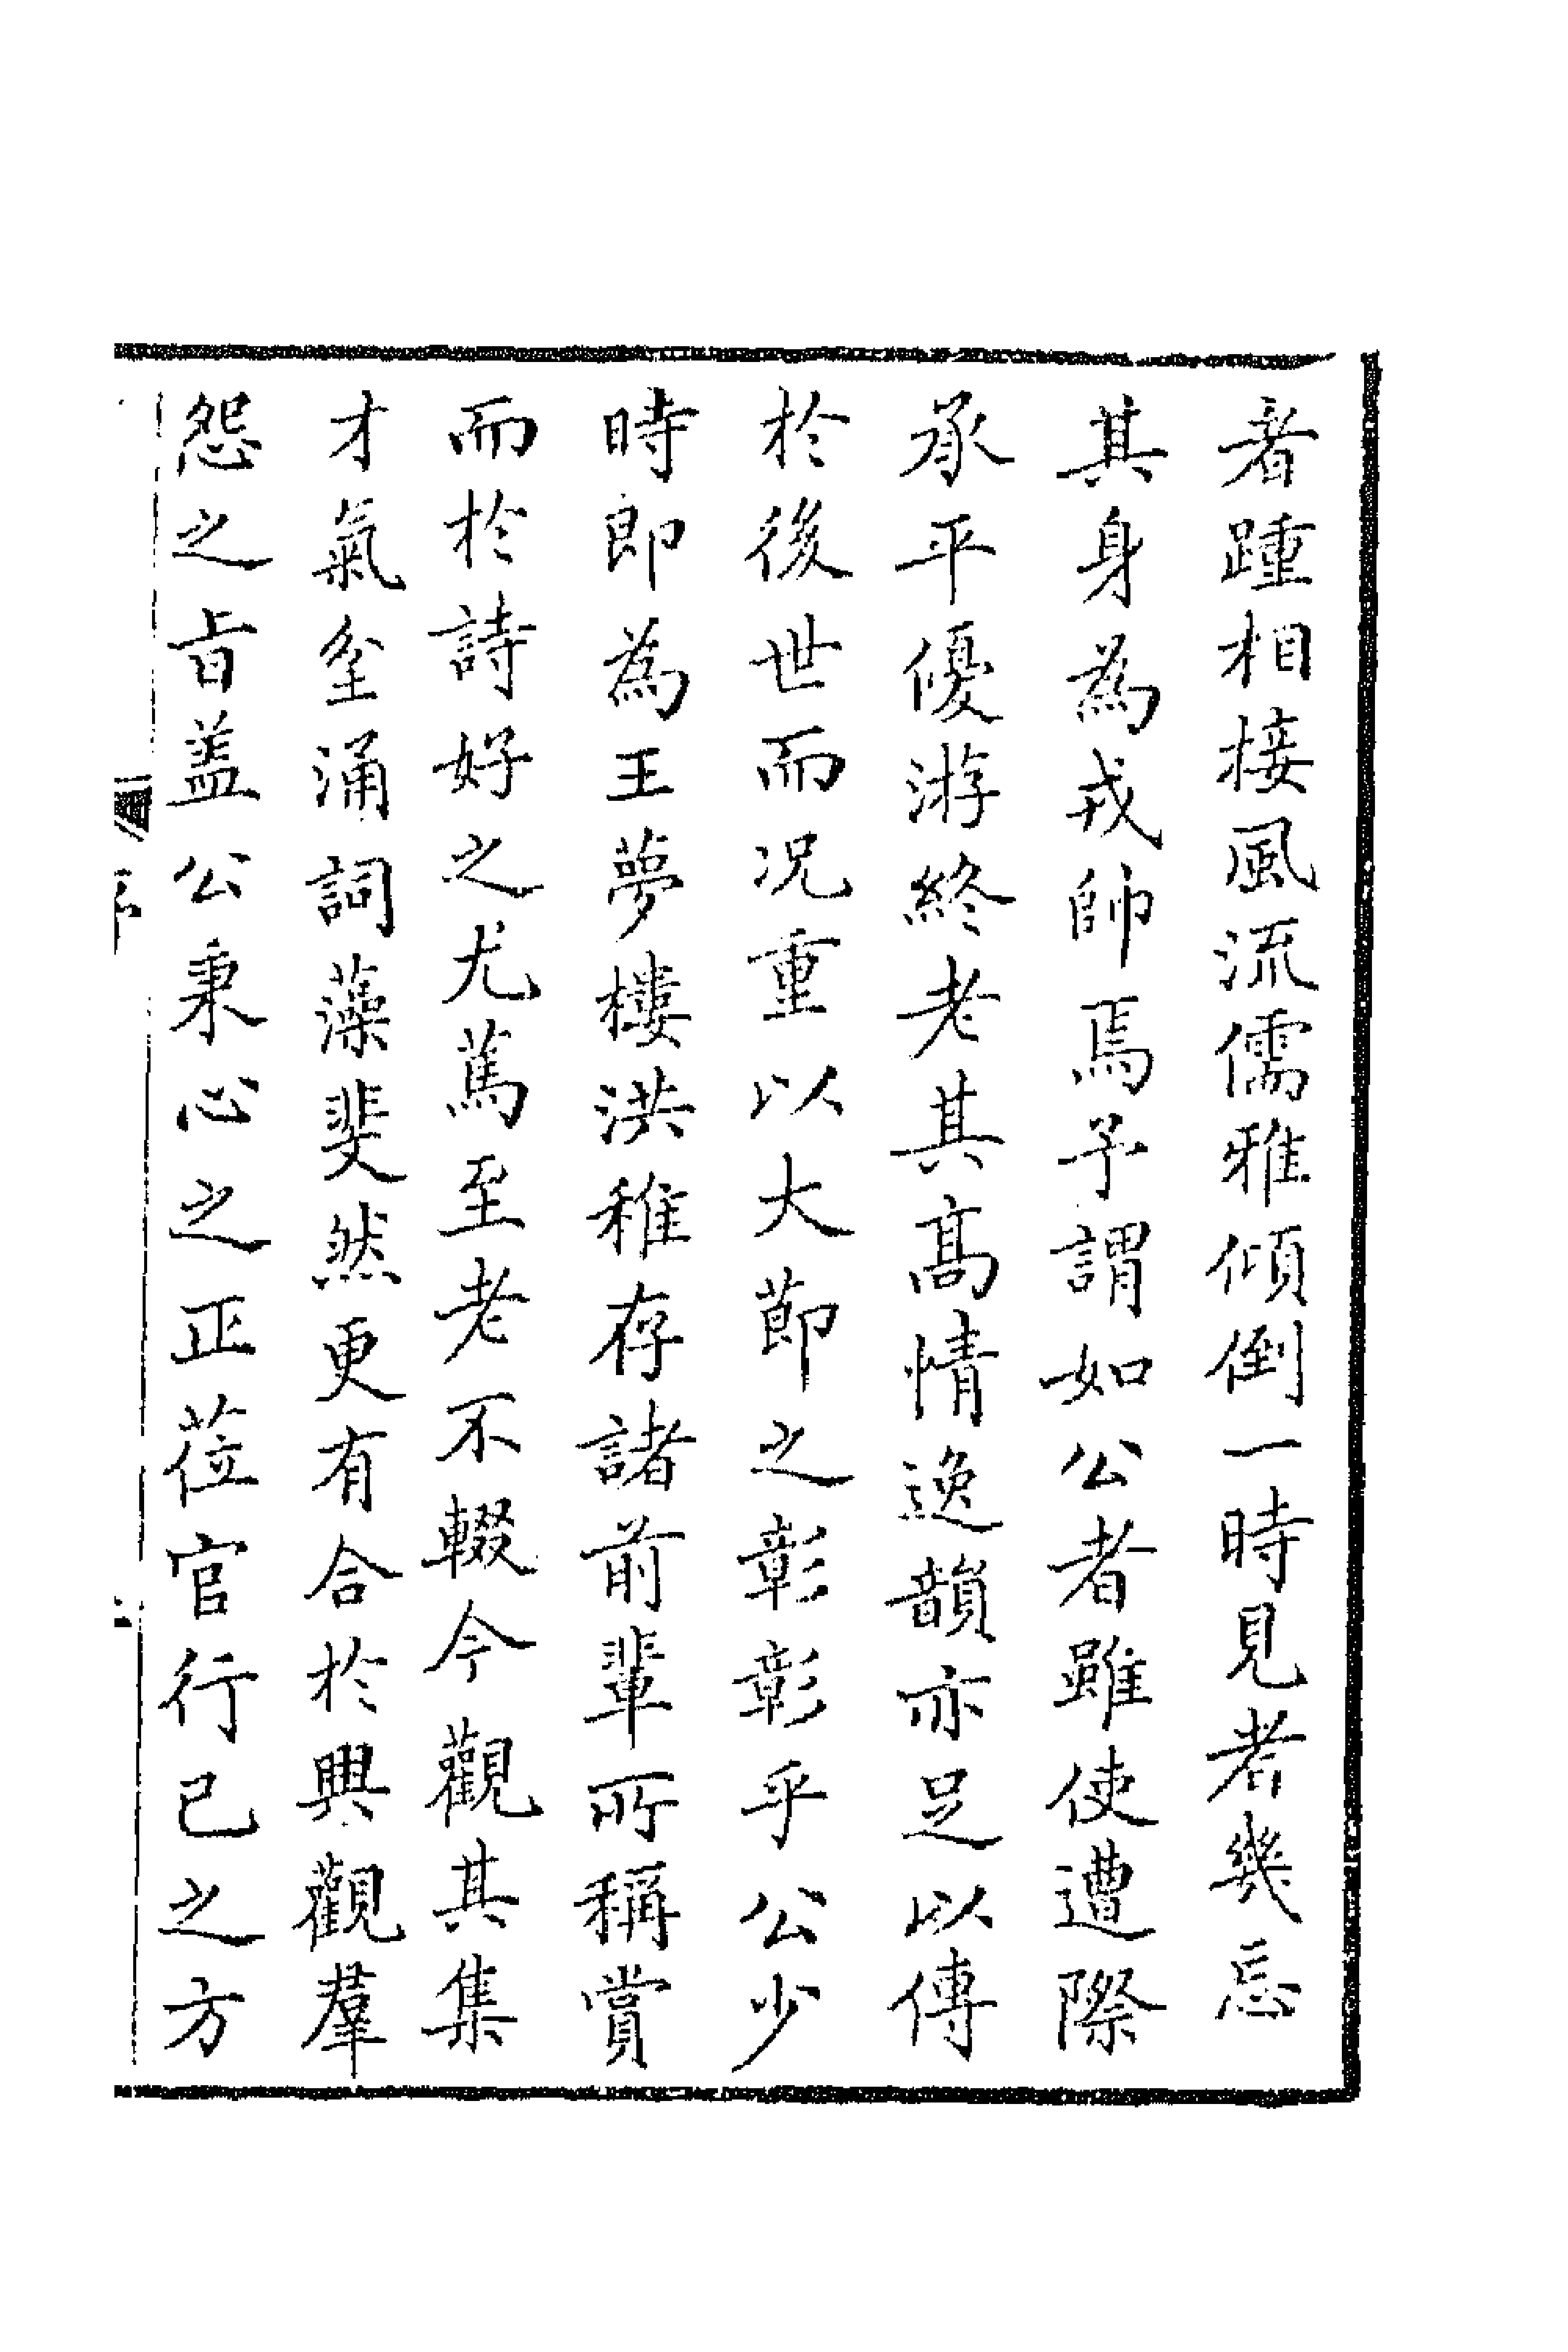 者踵相接風流儒雅傾倒一時見者幾忘
其身為戎帥焉予謂如公者雖使遭際
承平優游終老其髙情逸韻亦足以傳
於後世而况重以大節之彰彰乎公少
時即為王夢樓洪稚存諸前輩所稱賞
而於詩好之尤篤至老不輟今觀其集
才氣坌涌詞藻斐然更有合於興觀羣
怨之旨盖公秉心之正莅官行己之方